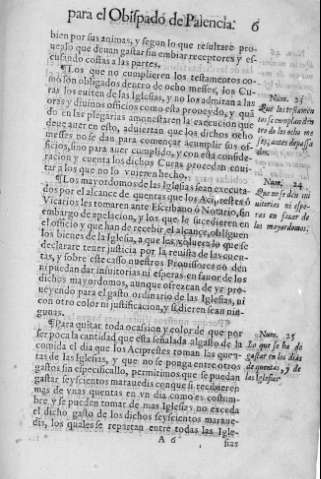 para el Obispado de Palencia. 6
bien por sus animas, y segun lo que resultare pro-
uealo que deuan gastar sin embiar receptores y es-
cusando costas a las partes.
¶Los que no cumplieren los testamentos co-
mo son obligados dentro de ocho messes, los Cu-
ras los euiten de las Iglesias, y no los admitan a las
oras y diuinos officios como esta proueydo, y quã
do en las plegarias amonestaren la execucion que
deue auer en esto, aduiertan que los dichos ocho
messes no se dan para començar acumplir sus of-
ficios, sino para auer cumplido, y con esta conside-
racion y cuenta los dichos Curas procedan
tar a los que no lo vuieren hecho.
¶Los mayordomos de las Iglesias sean executa-
dos por el alcance de quentas que los
Vicarios les tomaren ante Escribano o Notario, sin
embargo de apelacion, y los que le sucedieren en
el officio y que han de recebir el alcançe, obliguen
los bienes de la Iglesia, a que los
declarare tener justicia por la reuista de las cuen-
tas, y sobre este casso nuestros Prouissores no den
ni puedan dar insuitorias ni esperas en fauor de los
dichos mayordomos, aunque ofrezcan de yr pro-
ueyendo para el gasto ordinario de las Iglesias, ni
con otro color ni justificacion, y si dieren sean nin-
gunas.
¶Para quitar toda ocasion y color de que por
ser poca la cantidad que esta señalada al gasto de la
comida el dia que los Aciprestes toman las quen-
tas de las Iglesias, y que no se ponga entre otros
gastos sin especificallo, permitimos que se puedan
gastar seyscientos marauedis con que si recibieren
mas de vnas quentas en vn dia como es costum-
bre y se pueden tomar de mas Iglesias no exceda
el dicho gasto de los dichos seyscientos maraue-
dis, los quales se repartan entre todas las Igle-
A 6
sias
Num. 23
Que los testamen
tos se cumplan den
tro de los ocho me
ses, antes
Num. 24
Que no se den
ni espe-
ras en fauor de
los mayordomos.
Num. 25
Lo que se ha de
gastar en los dias
de quentas, y de
las Iglesias